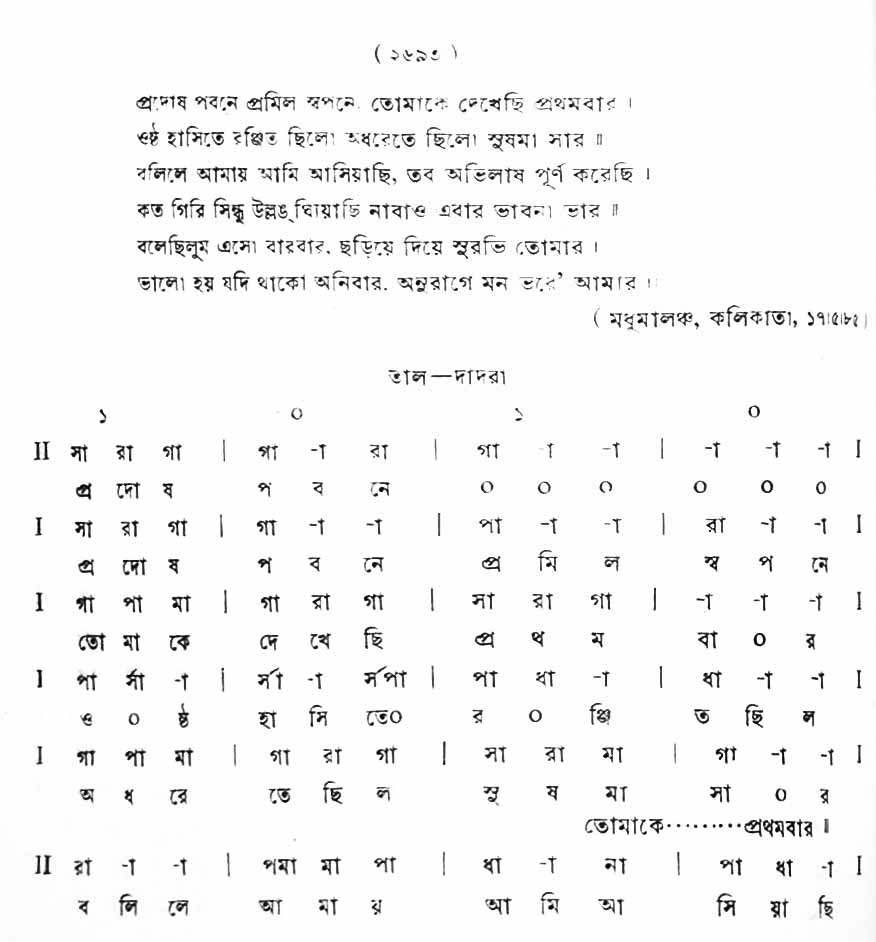 ( ১৬৯৩ )
প্রদোষ পবনে প্রমিল স্বপনে, তোমাকে দেখেছি প্রথমবার ।
ওষ্ঠ হাসিতে রঞ্জিত ছিলো অধরেতে ছিলো সুষমা সার ॥
বলিলে আমায় আমি আসিয়াছি, তব অভিলাষ পূর্ণ করেছি ।
কত গিরি সিন্ধু উল্লঙ্ঘিয়াছি নাবাও এবার ভাবনা ভার ॥
বলেছিলুম এসো বারবার, ছড়িয়ে দিয়ে সুরভি তোমার ।
ভালো হয় যদি থাকো অনিবার, অনুরাগে মন ভরে' আমার ॥
( মধুমালঞ্চ, কলিকাতা, ১৭।৫।৮৫)
তাল—দাদরা
১ ০ ১ ০
II সা রা গা | গা -া রা | গা -া -া | -া -া -া I
প্র দো ষ প ব নে ০ ০ ০ ০ ০ ০
I সা রা গা | গা -া -া | পা -া -া | রা -া -া I
প্র দো ষ প ব নে প্র মি ল স্ব প নে
I গা পা মা | গা রা গা | সা রা গা | -া -া -া I
তো মা কে দে খে ছি প্র থ ম বা ০ র
I পা র্সা -া | র্সা -া র্সপা | পা ধা -া | ধা -া -া I
ও ০ ষ্ঠ হা সি তে০ র ০ ঞ্জি ত ছি ল
I গা পা মা | গা রা গা | সা রা মা | গা -া -া I
অ ধ রে তে ছি ল সু ষ মা সা ০ র
তোমাকে·········প্রথমবার ॥
II রা -া -া | পমা মা পা | ধা -া না | পা ধা -া I
ব লি লে আ মা য় আ মি আ সি য়া ছি